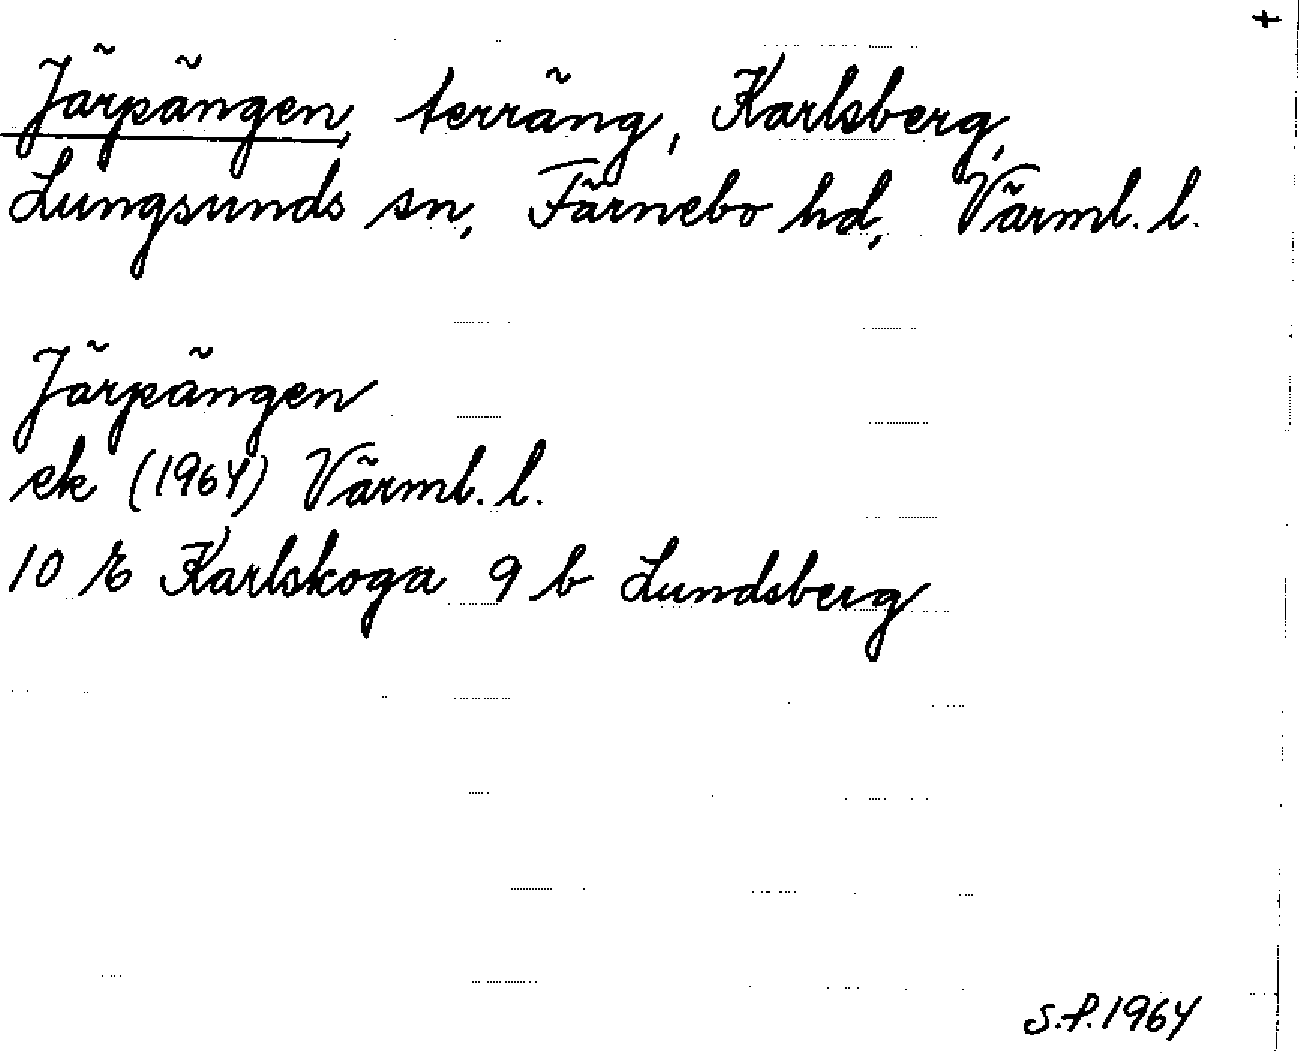 t
Järpängen, terräng, Karlsberg,
Lungsunds sn, Färnebo hd, Värml. l.
Järpängen
ek (1964) Värml. l.
10 E Karlskoga 9 b Lundsberg
S.f. 1964